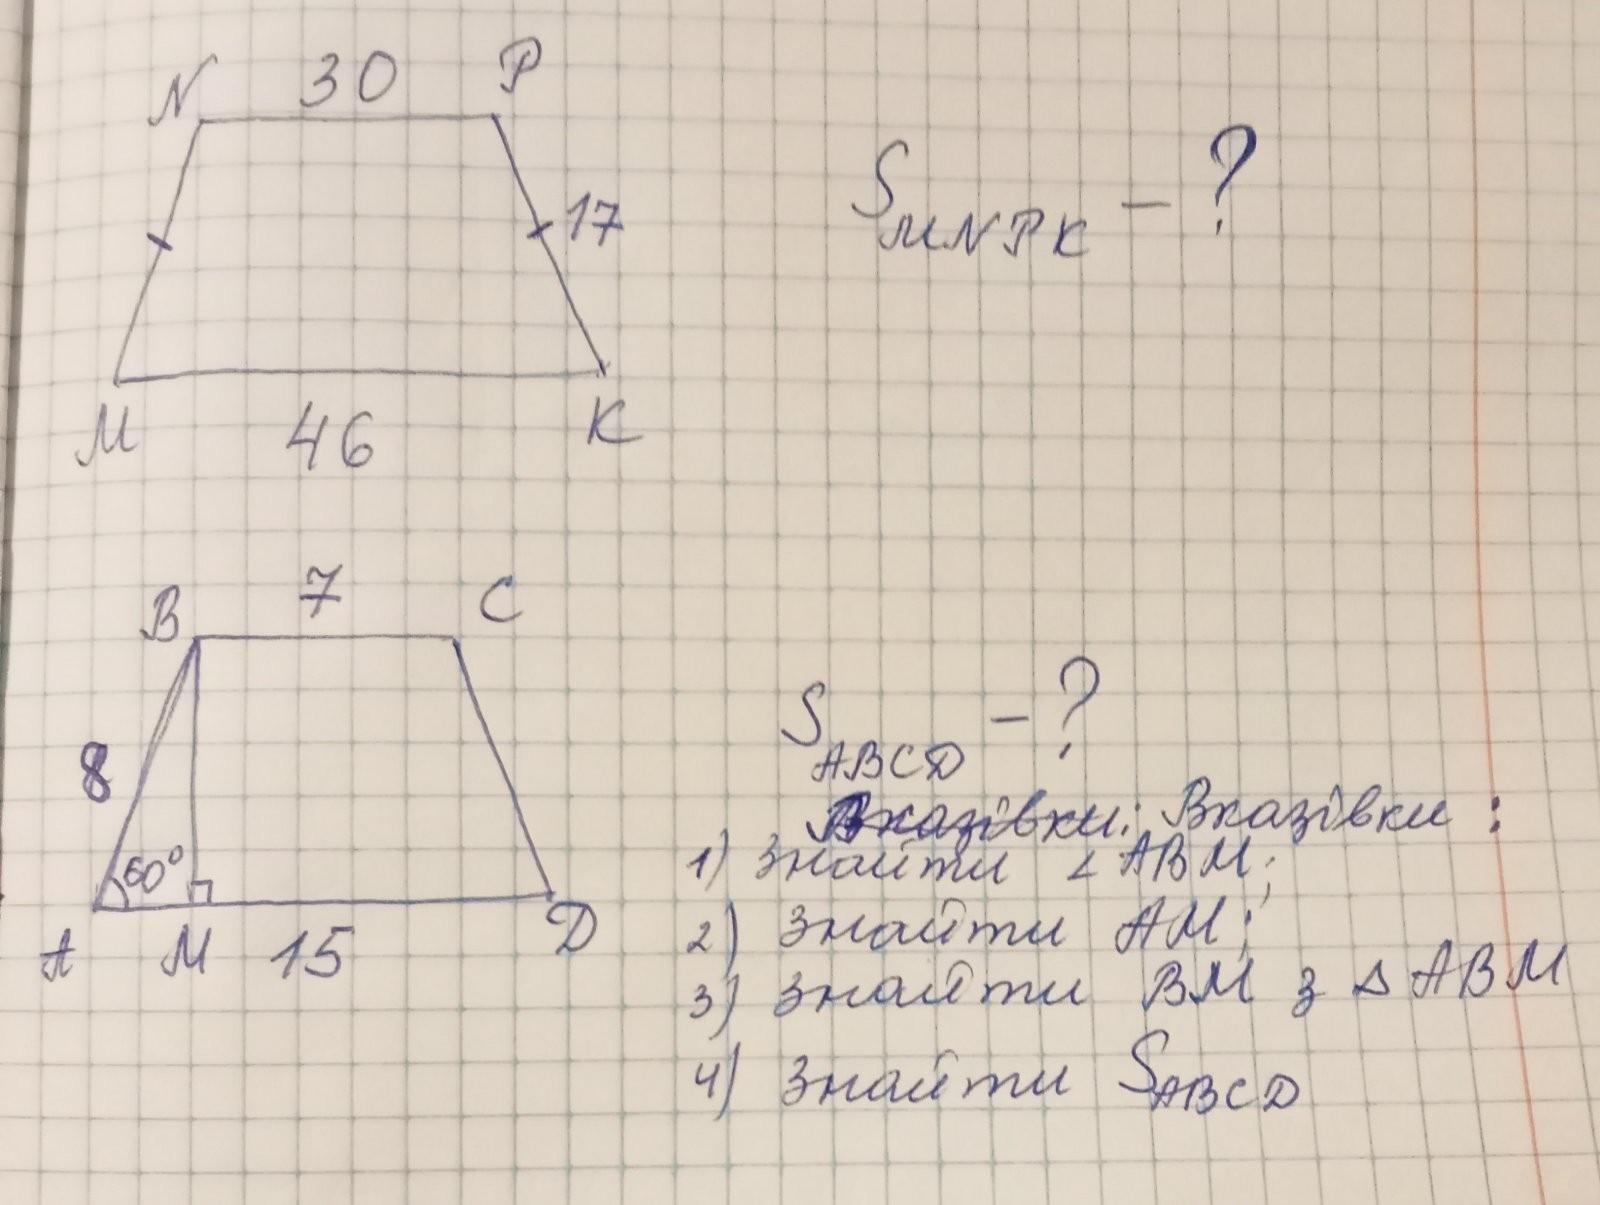 N 30 P
17
S MNPK - ?
M 46 K
B 7 C
8
60°
A M 15 D
S ABCD - ?
Вказівки: Вказівки:
1) Знайти ∠ ABM;
2) Знайти AM;
3) Знайти BM з △ ABM
4) Знайти S ABCD